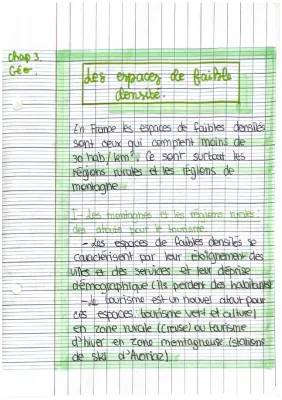 chap 3.
Géo.
Les espaces de faible
densité.
En France les espaces de faibles densités
sont ceux qui comptent moins de
30 hab/km². Ce sont surtout les
régions rurales et les régions de
montagne.
I - Les montagnes et les régions rurales:
des atouts pour le tourisme
- Les espaces de faibles densités se
caractérisent par leur éloignement des
villes et des services et leur déprise
démographique (ils perdent des habitants)
- Le tourisme est un nouvel atout pour
ces espaces: tourisme vert et culturel
en zone rurale (Creuse) ou tourisme
d'hiver en zone montagneuse (stations
de ski d'Avoriaz)